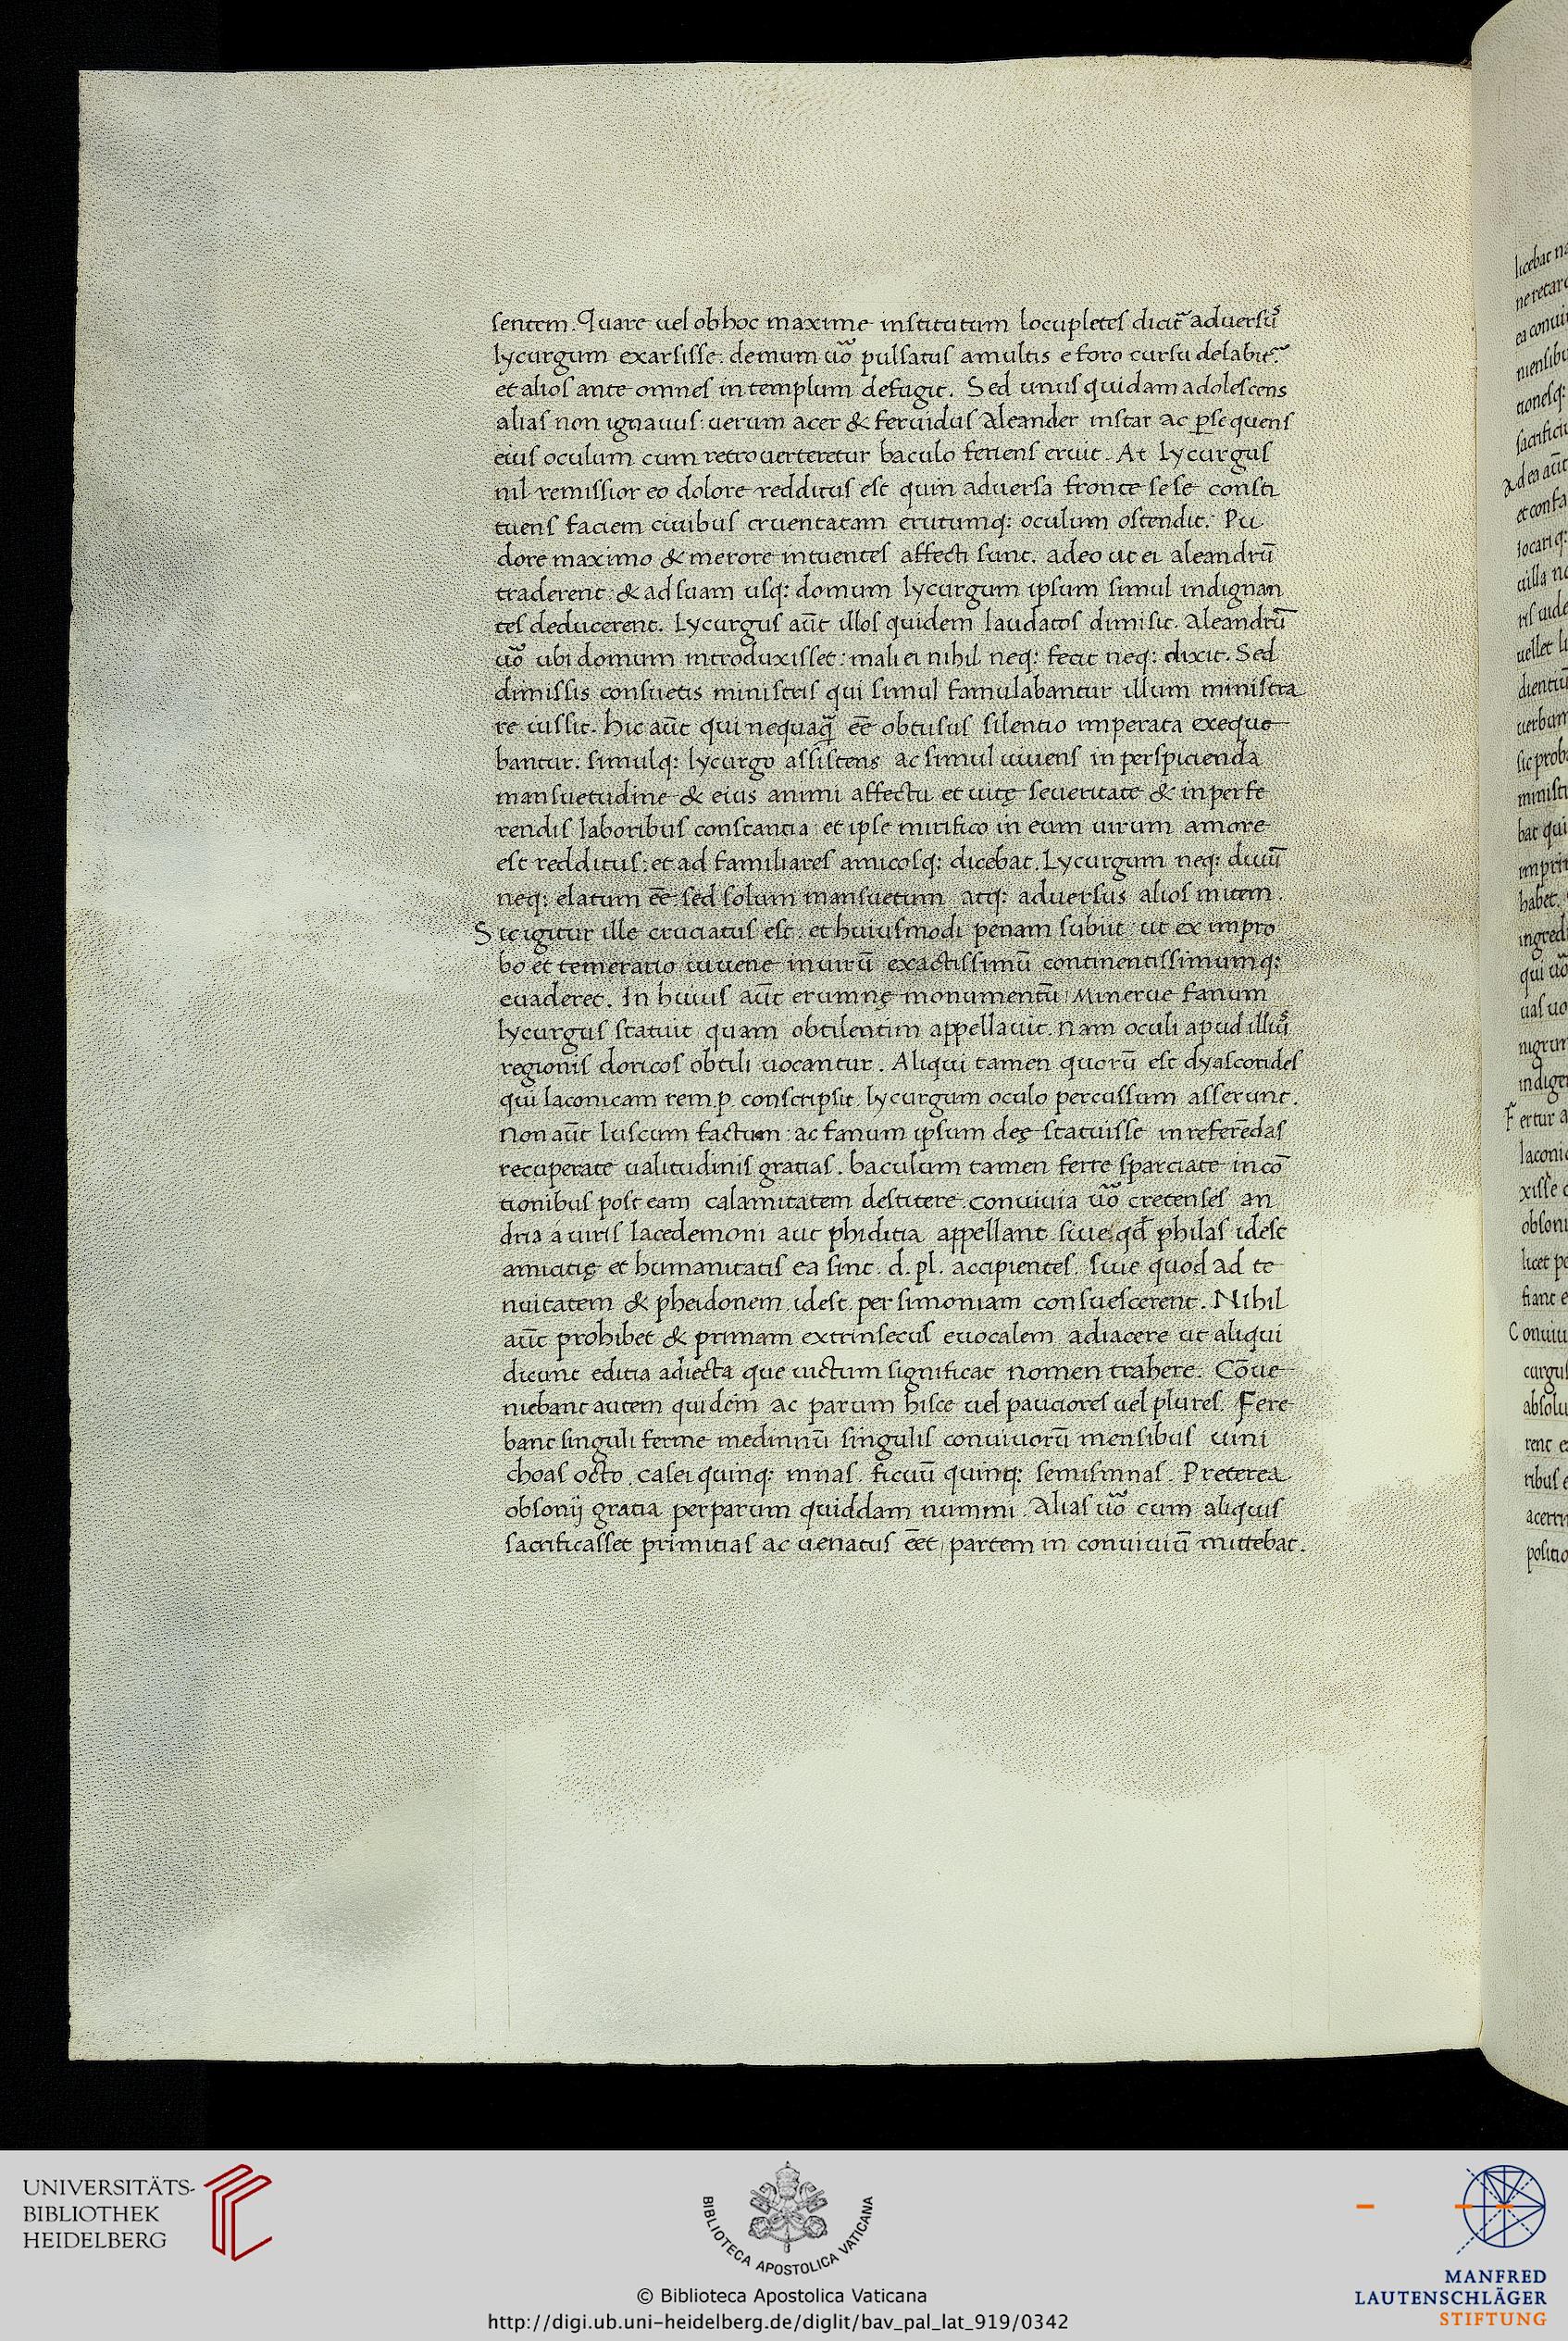 sentem. Quare uel ob hoc maxime institutum locupletes dicit̃ aduersũ
lycurgum exarsisse. demum uõ pulsatus a multis e foro cursu delabit̃.
et alios ante omnes in templum defugit. Sed unus quidam adolescens
alias non ignauus: uerum acer & feruidus aleander instat ac ꝑsequens
eius oculum cum retro uerteretur baculo feriens eruit. At lycurgus
nil remissior eo dolore redditus est quin aduersa fronte sese consti
tuens faciem ciuibus cruentatam erutumq: oculum ostendit. Pu
dore maximo & merore intuentes affecti sunt. adeo ut ei aleandrū
traderent: & ad suam usq: domum lycurgum ipsum simul indignan
tes deducerent. Lycurgus aũt illos quidem laudatos dimisit. Aleandrū
uõ ubi domum introduxisset: mali ei nihil neq: fecit neq: dixit. Sed
dimissis consuetis ministris qui simul famulabantur illum ministra
re iussit. hic aũt qui nequaq̃ ēē obtusus silentio imperata exeque
bantur. simulq: lycurgo assistens ac simul uiuens in perspicienda
mansuetudine & eius animi affectu et uitę seueritate & in perfe
rendis laboribus constantia: et ipse mirifico in eum uirum amore
est redditus: et ad familiares amicosq: dicebat. Lycurgum neq: duū
neq: elatum ēē: sed solum mansuetum atq: aduersus alios mitem.
Sic igitur ille cruciatus est: et huiusmodi penam subiit: ut ex impro
bo et temerario iuuene in uirū exactissimū continentissimumq:
euaderet. In huius aũt erumnę monumentū Minerue fanum
lycurgus statuit quam obtilentim appellauit. nam oculi apud illiũ
regionis doricos obtili uocantur. Aliqui tamen quorū est dyascorides
qui laconicam rem.p. conscripsit. lycurgum oculo percussum asserunt.
Non aũt luscum factum: ac fanum ipsum deę statuisse in referēdas
recuperate ualitudinis gratias. baculum tamen ferre sparciate in cō
tionibus post eam calamitatem destitere. conuiuia uõ cretenses an
dria á uiris lacedemoni aut phiditia appellant. siue qd̃ philas idest
amicitię et humanitatis ea sint .d. pl. accipientes. siue quod ad te
nuitatem & pheidonem .idest. persimoniam consuescerent. Nihil
aũt prohibet & primam extrinsecus euocalem adiacere ut aliqui
dicunt editia adiecta que uictum significat nomen trahere. Cōue
niebant autem quidem ac parum hisce uel pauciores uel plures. Fere
bant singuli ferme medimnū singulis conuiuorū mensibus uini
choas octo. casei quinq: mnas. ficuū quinq: semismnas. Preterea
obsonij gratia perparum quiddam nummi. Alias uõ cum aliquis
sacrificasset primitias ac uenatus ēēt partem in conuiuiū mittebat.
licebat
nigrum
indige
Fertur a
laconi
obsoni
licet
Conuiui
curgus
absolu
UNIVERSITÄTS-
BIBLIOTHEK
HEIDELBERG
BIBLIOTECA APOSTOLICA VATICANA
© Biblioteca Apostolica Vaticana
http://digi.ub.uni-heidelberg.de/diglit/bav_pal_lat_919/0342
MANFRED
LAUTENSCHLÄGER
STIFTUNG